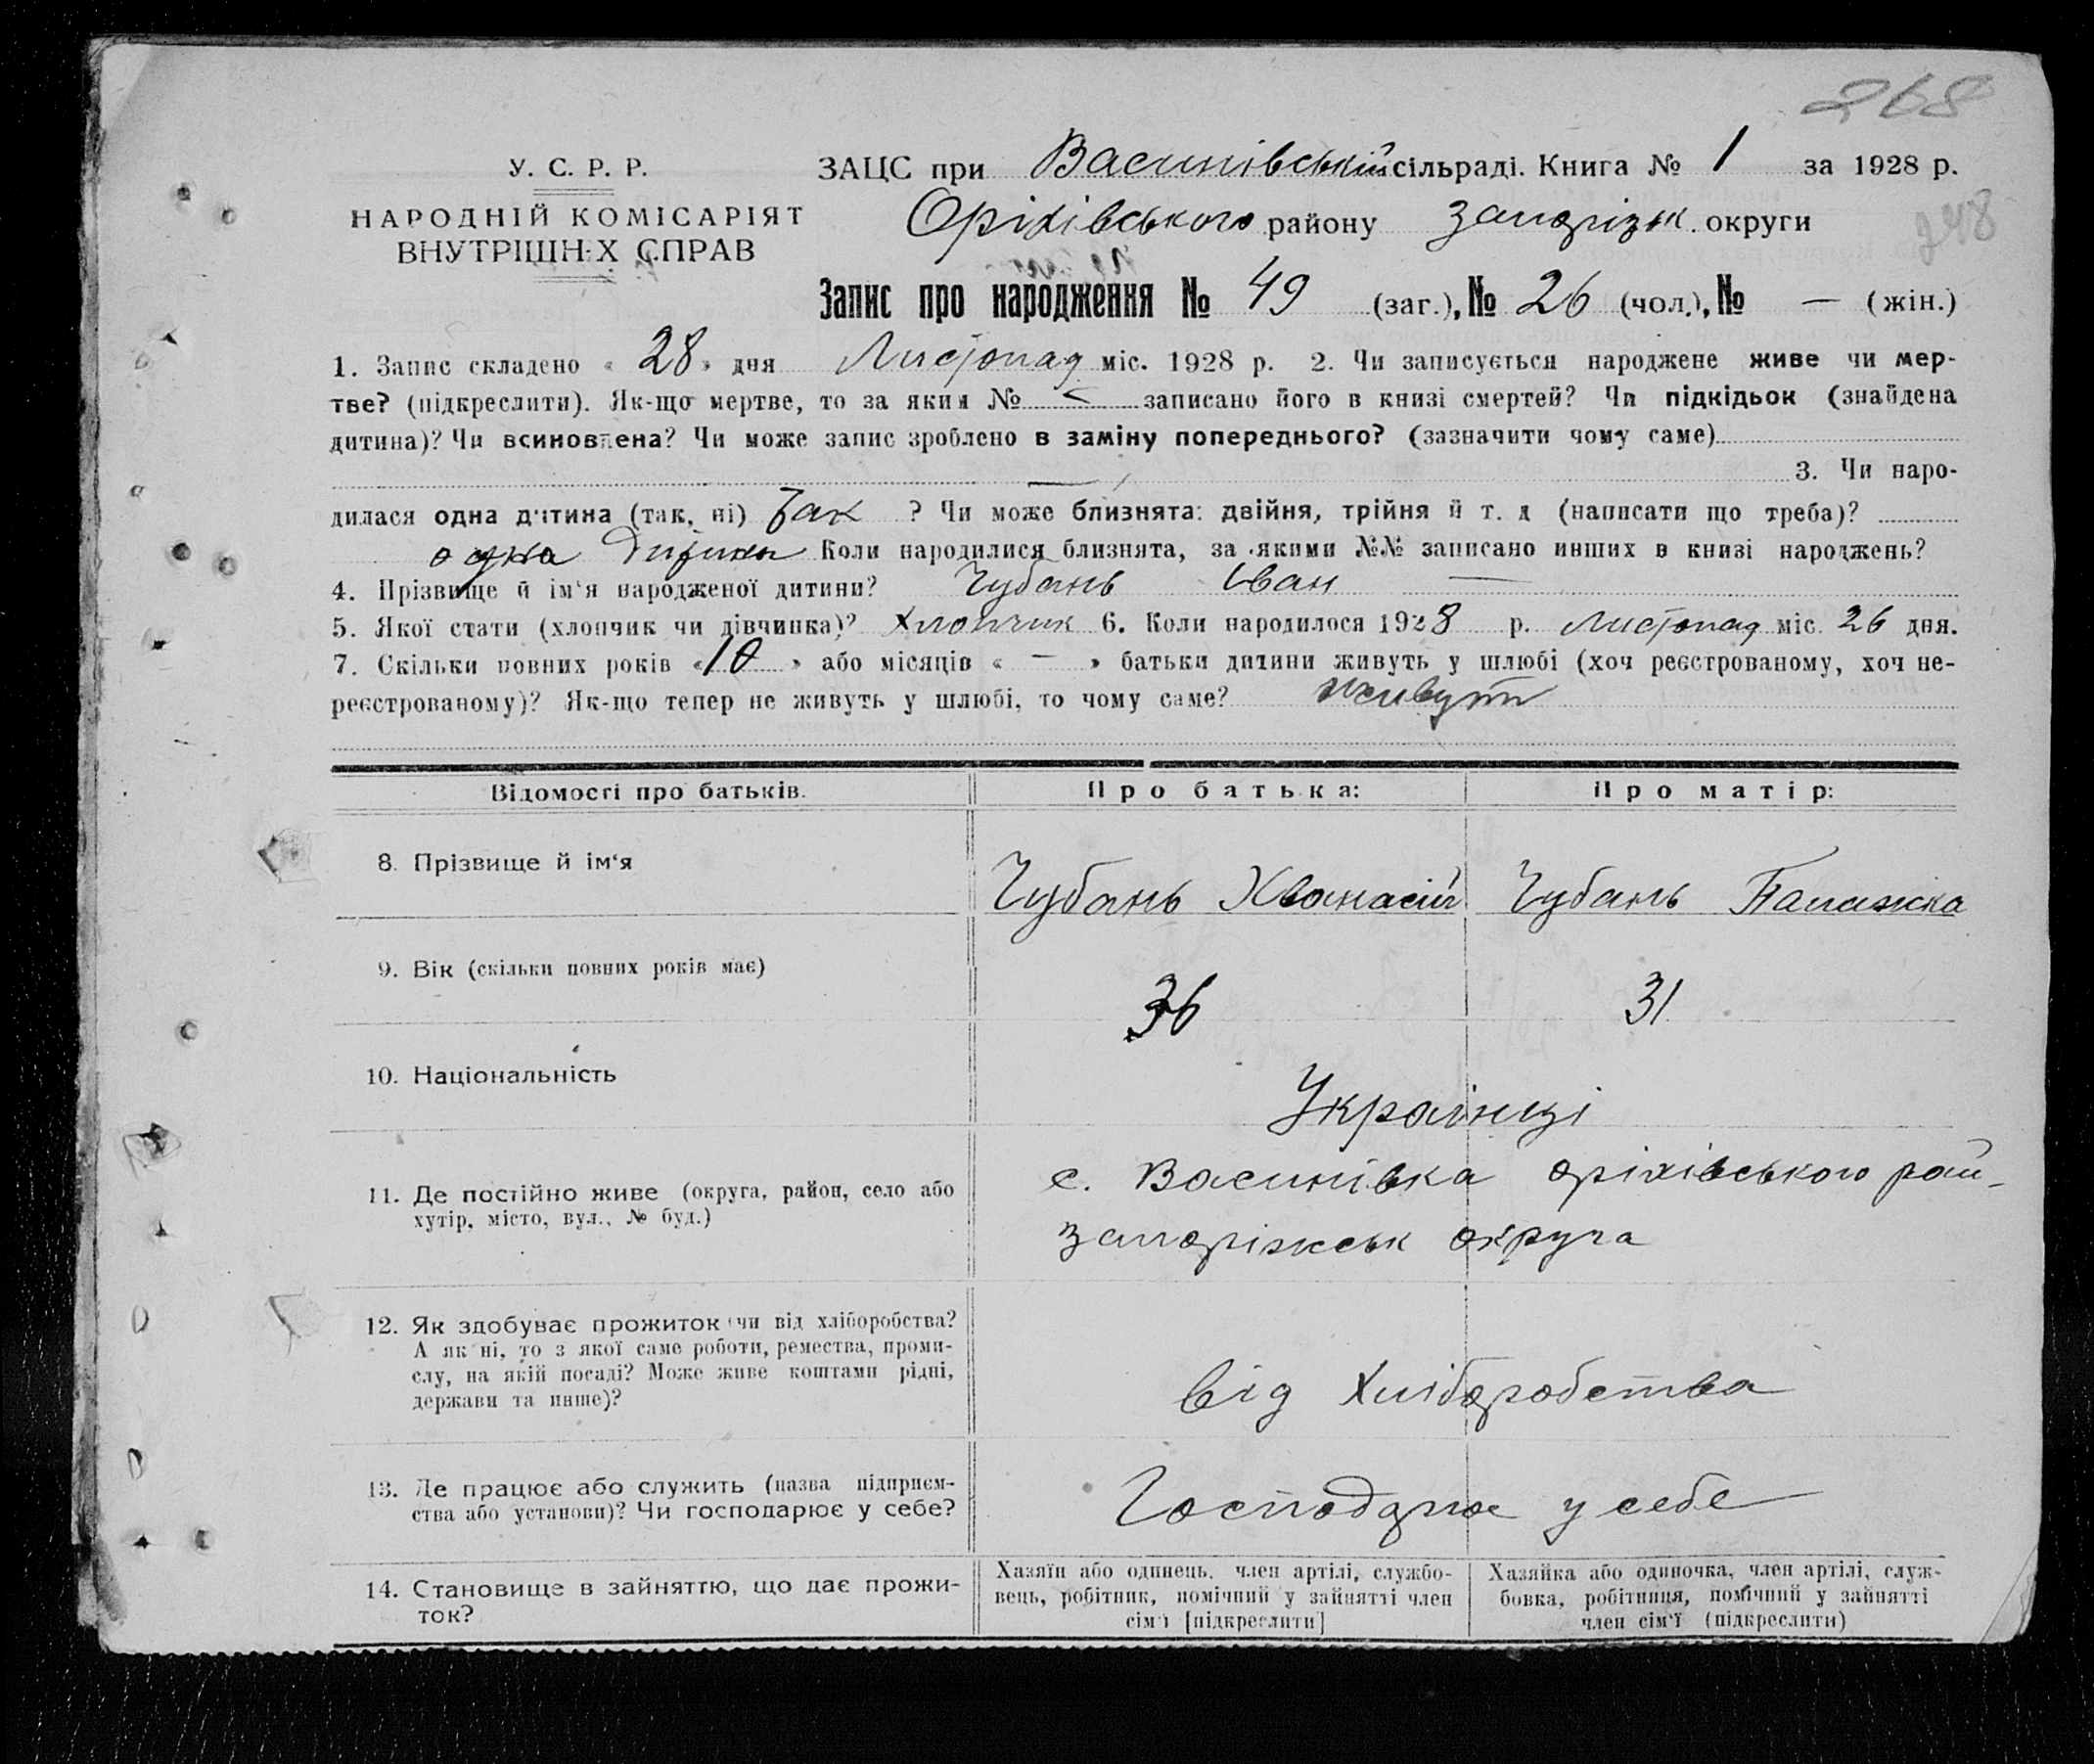 268
У. С. Р. Р.
НАРОДНІЙ КОМІСАРІЯТ
ВНУТРІШН:Х СПРАВ
ЗАЦС при Васинівській сільраді. Книга № 1 за 1928 р.
Оріхівського району Запорізьк. округи
248
Запис про народження № 49 (заг.), № 26 (чол.), № — (жін.)
1. Запис складено « 28 » дня Листопад міс. 1928 р. 2. Чи записується народжене живе чи мер-
тве? (підкреслити). Як-що мертве, то за яким № записано його в книзі смертей? Чи підкідьок (знайдена
дитина)? Чи всиновлена? Чи може запис зроблено в заміну попереднього? (зазначити чому саме)
— 3. Чи наро-
дилася одна дитина (так, ні) Так ? Чи може близнята: двійня, трійня й т. д (написати що треба)?
одна дитина Коли народилися близнята, за якими №№ записано инших в книзі народжень?
4. Прізвище й ім'я народженої дитини? Чубань Іван —
5. Якої стати (хлопчик чи дівчинка)? Хлопчик 6. Коли народилося 1928 р. Листопад міс. 26 дня.
7. Скільки повних років « 10 » або місяців « — » батьки дитини живуть у шлюбі (хоч реєстрованому, хоч не-
реєстрованому)? Як-що тепер не живуть у шлюбі, то чому саме? живуть
Відомості про батьків. Про батька: Про матір:
8. Прізвище й ім'я Чубань Хванасій Чубань Палажка
9. Вік (скільки повних років має) 36 31
10. Національність Українці
11. Де постійно живе (округа, район, село або
хутір, місто, вул., № буд.)
с. Васинівка оріхівського рай-
запоріжськ округа
12. Як здобуває прожиток (чи від хліборобства?
А як ні, то з якої саме роботи, ремества, проми-
слу, на якій посаді? Може живе коштами рідні,
держави та инше)?
від Хліборобства
13. Де працює або служить (назва підприєм-
ства або установи)? Чи господарює у себе?
Господарює у себе
14. Становище в зайняттю, що дає прожи-
ток?
Хазяїн або одинець, член артілі, службо-
вець, робітник, помічний у зайнятті член
сім'ї [підкреслити]
Хазяйка або одиночка, член артілі, служ-
бовка, робітниця, помічний у зайнятті
член сім'ї (підкреслити)